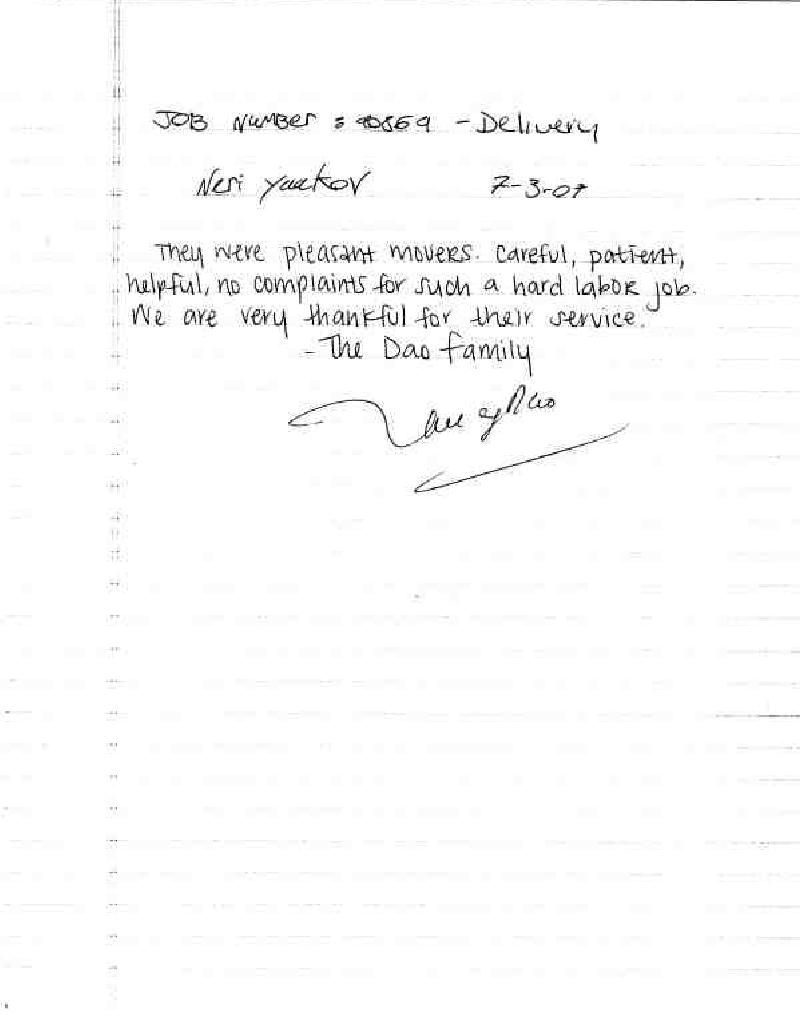 JOB NUMBER : 90869 - Delivery
Neri 7-3-07
They were pleasant movers. Careful, patient,
helpful, no complaints for such a hard labor job.
We are very thankful for their service.
- The Dao family
Dao